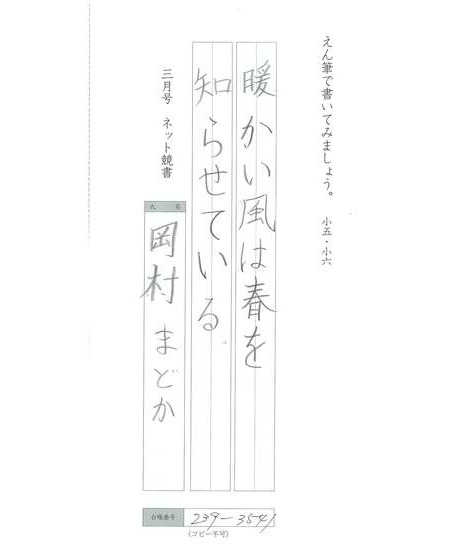 えん筆で書いてみましょう。 小五・小六
暖かい風は春を
知らせている。
三月号 ネット競書
氏名
岡村まどか
台帳番号 239-3541
(コピー不可)